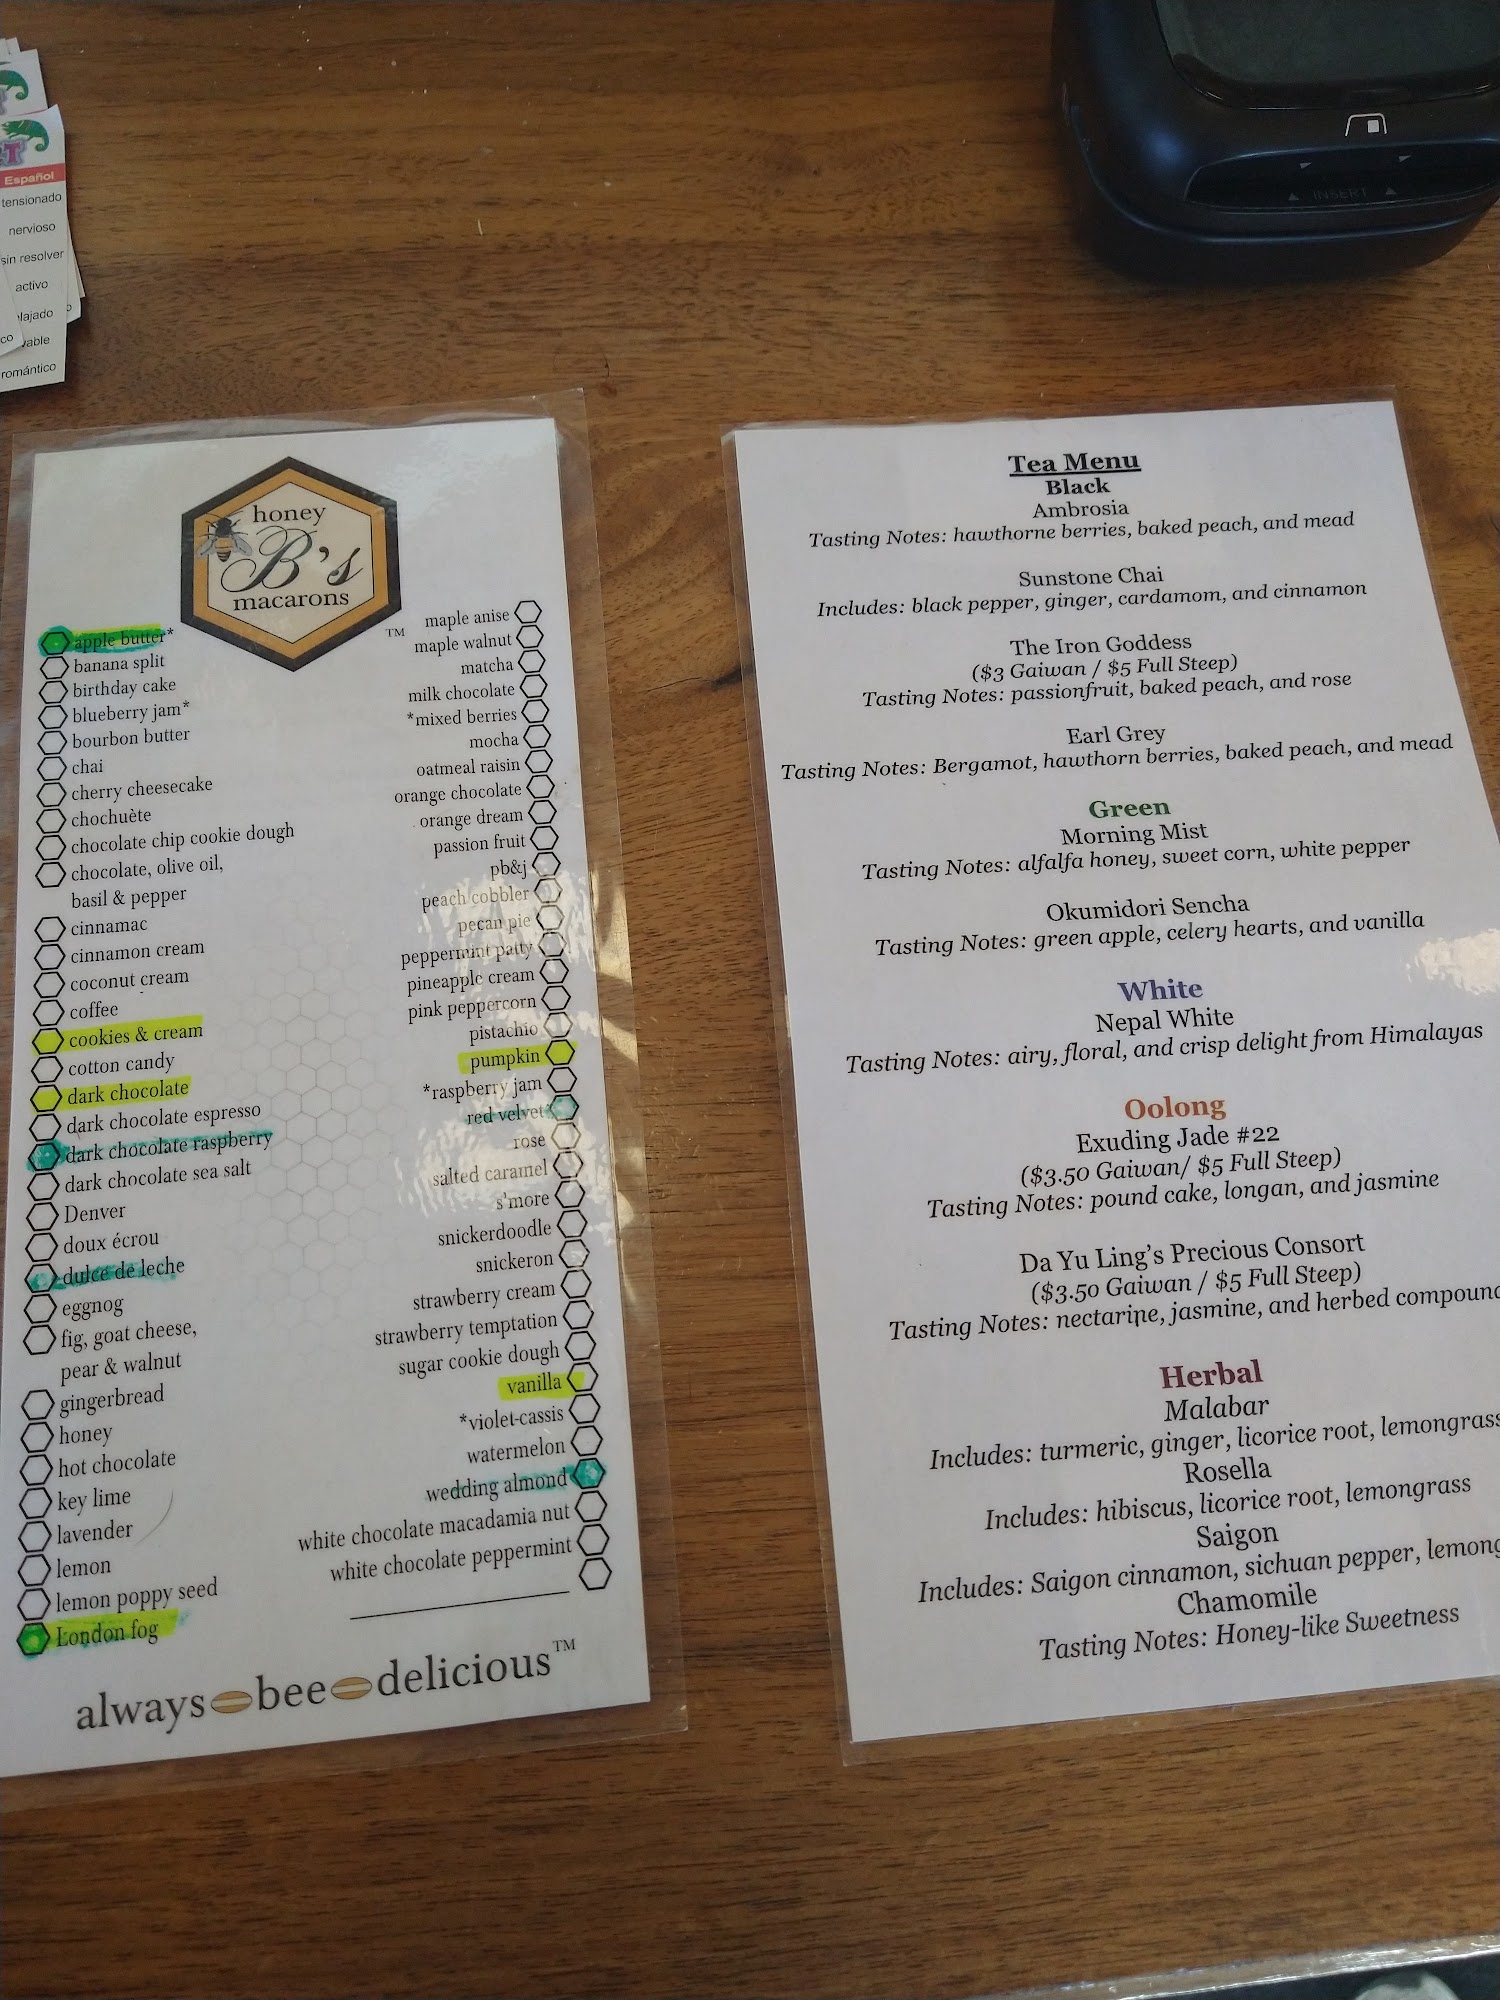 T
Español
tensionado
nervioso
sin resolver
activo
co
romántico
INSERT
honey
B's
macarons
TM
apple butter*
banana split
birthday cake
blueberry jam*
bourbon butter
chai
cherry cheesecake
chochuète
chocolate chip cookie dough
chocolate, olive oil,
basil & pepper
cinnamac
cinnamon cream
coconut cream
coffee
cookies & cream
cotton candy
dark chocolate
dark chocolate espresso
dark chocolate raspberry
dark chocolate sea salt
Denver
doux écrou
dulce de leche
eggnog
fig, goat cheese,
pear & walnut
gingerbread
honey
hot chocolate
key lime
lavender
lemon
lemon poppy seed
London fog
maple anise
maple walnut
matcha
milk chocolate
*mixed berries
mocha
oatmeal raisin
orange chocolate
orange dream
passion fruit
pb&j
peach cobbler
pecan pie
peppermint patty
pineapple cream
pink peppercorn
pistachio
pumpkin
*raspberry jam
red velvet
rose
salted caramel
s'more
snickerdoodle
snickeron
strawberry cream
strawberry temptation
sugar cookie dough
vanilla
*violet-cassis
watermelon
wedding almond
white chocolate macadamia nut
white chocolate peppermint
always bee delicious TM
Tea Menu
Black
Ambrosia
Tasting Notes: hawthorne berries, baked peach, and mead
Sunstone Chai
Includes: black pepper, ginger, cardamom, and cinnamon
The Iron Goddess
($3 Gaiwan / $5 Full Steep)
Tasting Notes: passionfruit, baked peach, and rose
Earl Grey
Tasting Notes: Bergamot, hawthorn berries, baked peach, and mead
Green
Morning Mist
Tasting Notes: alfalfa honey, sweet corn, white pepper
Okumidori Sencha
Tasting Notes: green apple, celery hearts, and vanilla
White
Nepal White
Tasting Notes: airy, floral, and crisp delight from Himalayas
Oolong
Exuding Jade #22
($3.50 Gaiwan/ $5 Full Steep)
Tasting Notes: pound cake, longan, and jasmine
Da Yu Ling's Precious Consort
($3.50 Gaiwan / $5 Full Steep)
Tasting Notes: nectarine, jasmine, and herbed compound
Herbal
Malabar
Includes: turmeric, ginger, licorice root, lemongrass
Rosella
Includes: hibiscus, licorice root, lemongrass
Saigon
Includes: Saigon cinnamon, sichuan pepper, lemong
Chamomile
Tasting Notes: Honey-like Sweetness